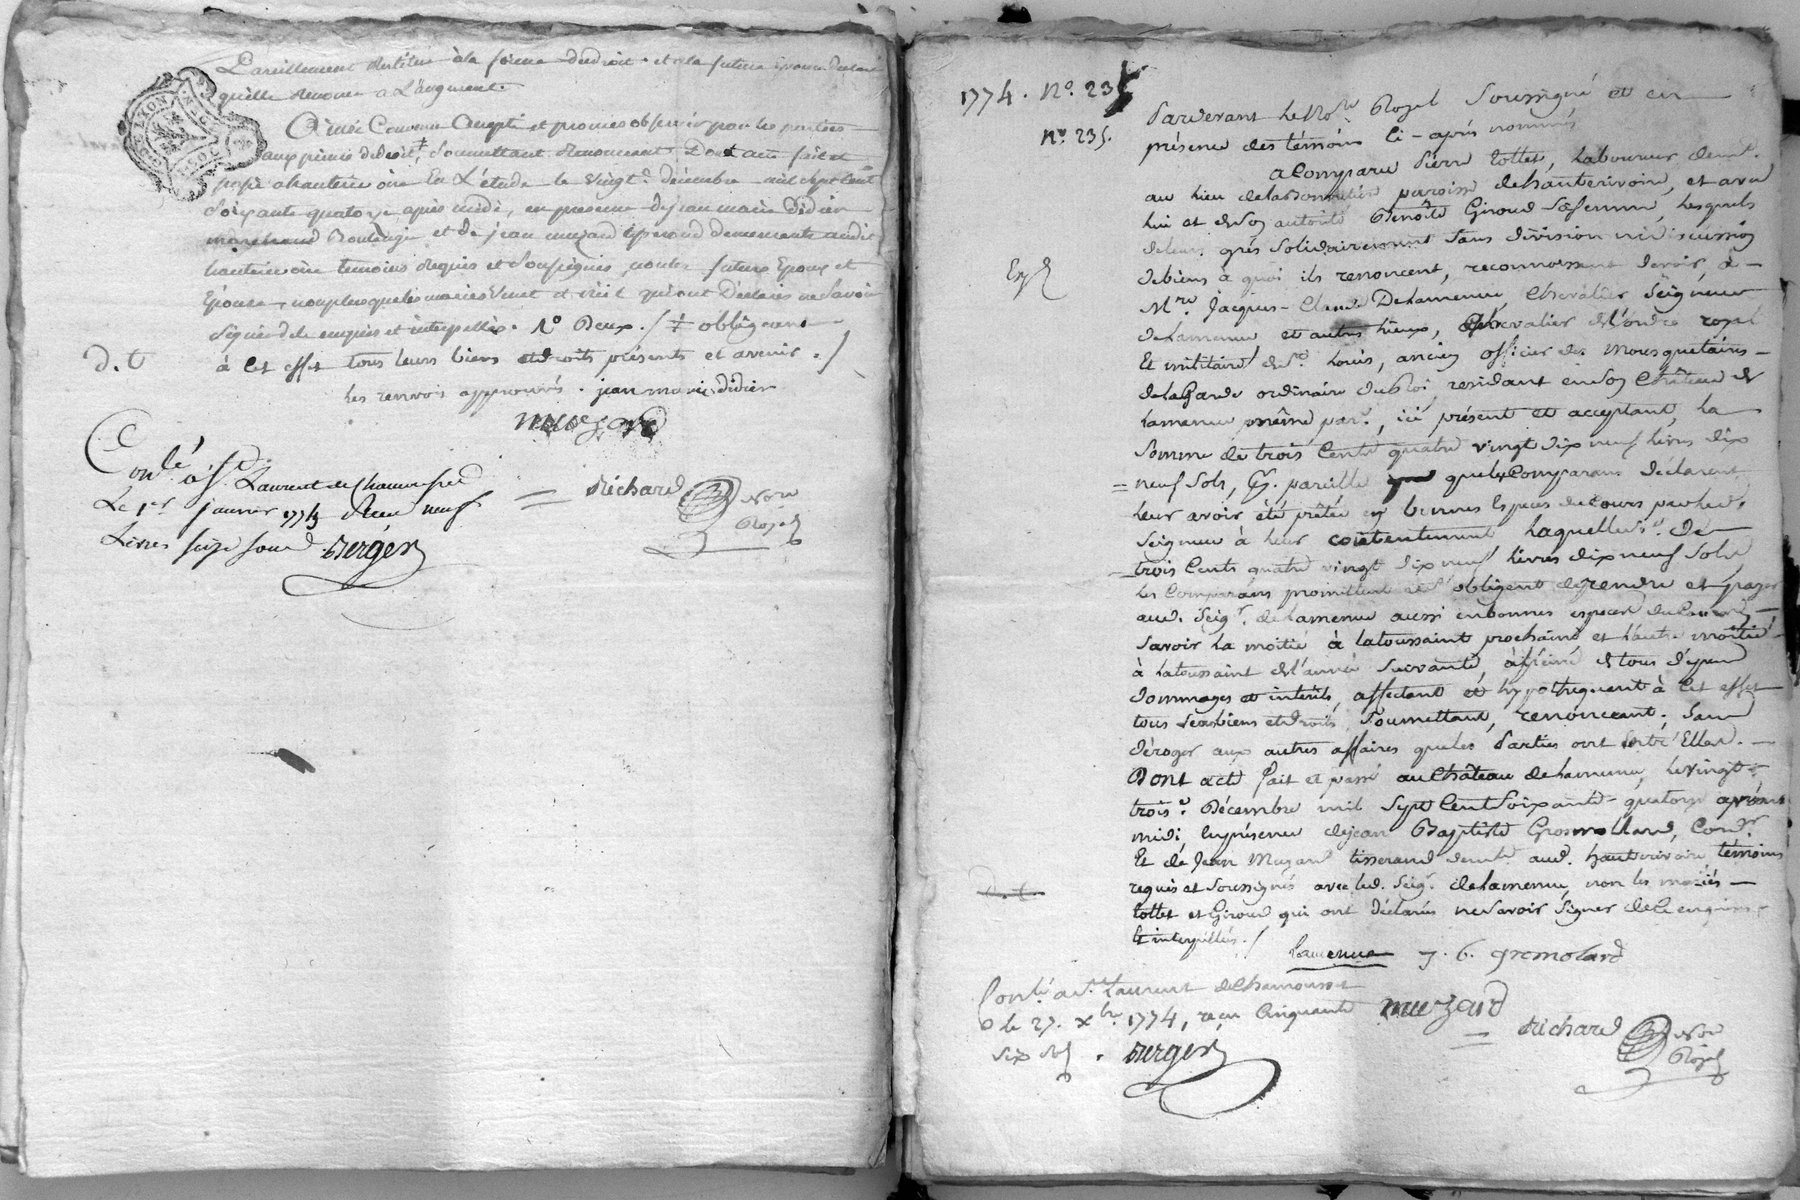 Pareillement destitue à la forme du droit. et a la future Epouse declaré
qu'elle renonce a L'augment.
Ainsi Convenu Accepté et promis observer par les parties
aux peines de droit, ‡ soumettant Renonceant Dont acte fait et
passé a hauterivoire En L'étude le vingt.e décembre mil sept cent
Soixante quatorze après midi, en presence de jean marie Didier
marchand Boulanger et de jean muzard tisserand demeurants audit
hauterivoire temoins Requis et Soussignés, non les futurs Epoux et
Epouse, non plus que les mariés Venet et qui ont Déclarés ne Savoir
Signer de ce enquis et interpellés. No Deux. / ‡ obligeant
D. t à cet effet tous leurs biens et droits présents et avenir. /
les renvois approuvés. jean marie didier
muzard
Conlé à St. Laurent de Chamousset
Le 1er janvier 1775 Reçu neuf
Livres seize sous. Berger
= Richard Nore
Royal
GEN. DE LYON
1774. No. 235
No. 235.
Pardevant le No.re Royal Soussigné et en
présence des témoins Ci-après nommés
a Comparu Pierre tollet, Laboureur demt.
au lieu de la paroisse de hauterivoire, et avec
lui et de Son autorité Benoîte Giroud Sa femme, Lesquels
de leurs grés Solidairement Sans division ni discussion
de biens à quoi ils renoncent, reconnoissent devoir, à
Exp.d
M.re Jacques-Claude Delamenue, Chevalier Seigneur
de Lamenue, et autres Lieux, Chevalier de L'ordre royal
Et militaire de St. Louis, ancien officier des Mousquetaires
de la Garde ordinaire du Roi, residant en Son Château de
Lamenue même par., ici présent et acceptant, La
Somme de trois Cents quatre vingt dix neuf Livres dix
= neuf Sols, pareille que les Comparans déclarent
leur avoir été prêtée en bonnes Especes de Cours par led.
Seigneur à leur contentement Laquelle S.e De
= trois Cents quatre vingt dix neuf Livres dix neuf Sols
les Comparans promettent et S'obligent de rendre et payer
aud. Seigr. de Lamenue aussi en bonnes especes du Cours,
Savoir La moitié à la toussaint prochaine et L'autre moitié
à la toussaint de L'année Suivante, à peine de tous dépens
dommages et intérêts, affectant et hypothequant à Cet effet
tous Ses biens et droits, Soumettant, renonceant; Sans
déroger aux autres affaires que les Parties ont Entr'Elles.
Dont acte fait et passé au Château de Lamenue, Le vingt
trois.e Décembre mil Sept Cent Soixante-quatorze après
midi, En présence de jean Baptiste Gromollard, Cord.r
Et de Jean Muzard tisserand demt. aud. hauterivoire, témoins
requis et Soussignés avec led. Seigr. de Lamenue, non les mariés
D. t.
tollet et Giroud qui ont déclarés ne Savoir Signer de Ce enquis
Et interpellés. /
Lamenue J. b. gromolard
Conlé à St. Laurent de Chamousset
le 27. xbre. 1774, reçu Cinquante
Six Sols. Berger
muzard
= Richard Nore
Royal